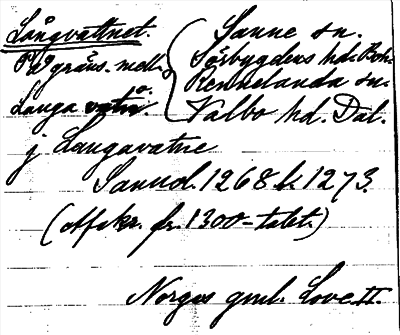 Långvattnet.
På gräns. mell.
Sanne sn.
Sörbygdens hd. Boh.
Rennelanda sn.
Valbo hd. Dal.
Langa vatn.
j Langavatne
Sannol. 1268 l. 1273.
(afskr. fr. 1300-talet.)
Norges gml. Love II.